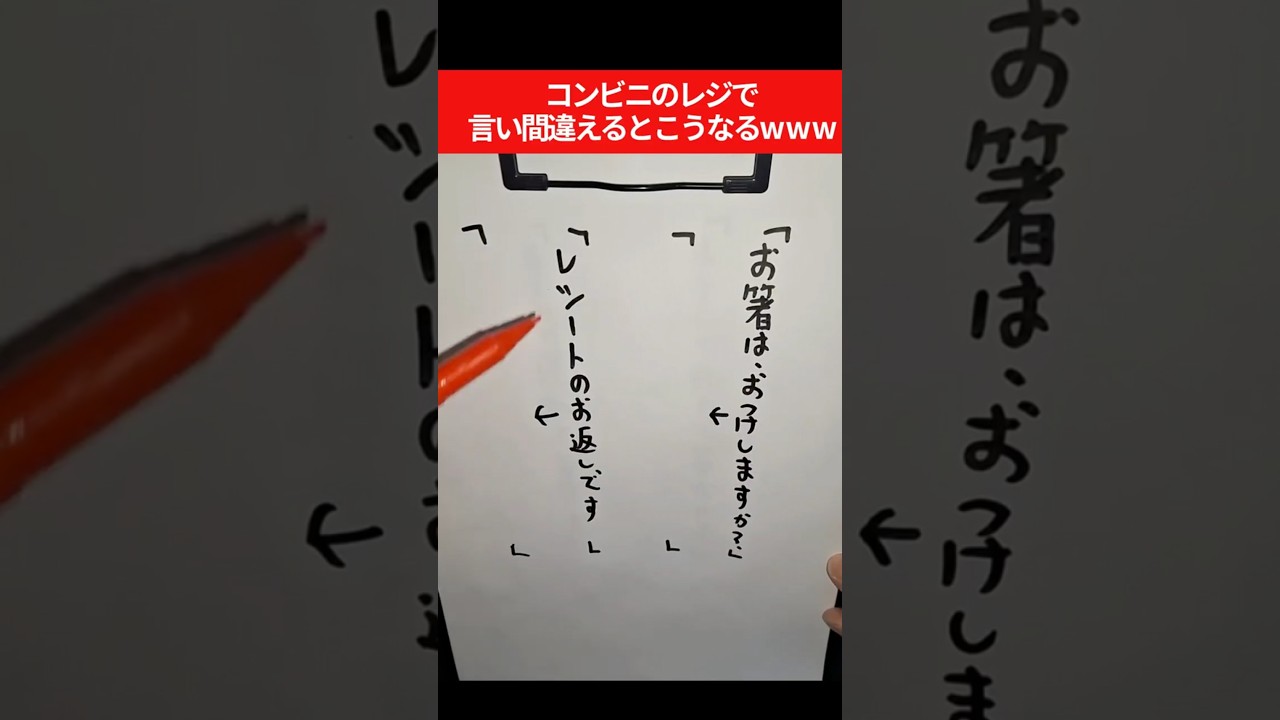 コンビニのレジで
言い間違えるとこうなるwww
「お箸は、おつけしますか?」
「
」
「レシートのお返しです」
「
」